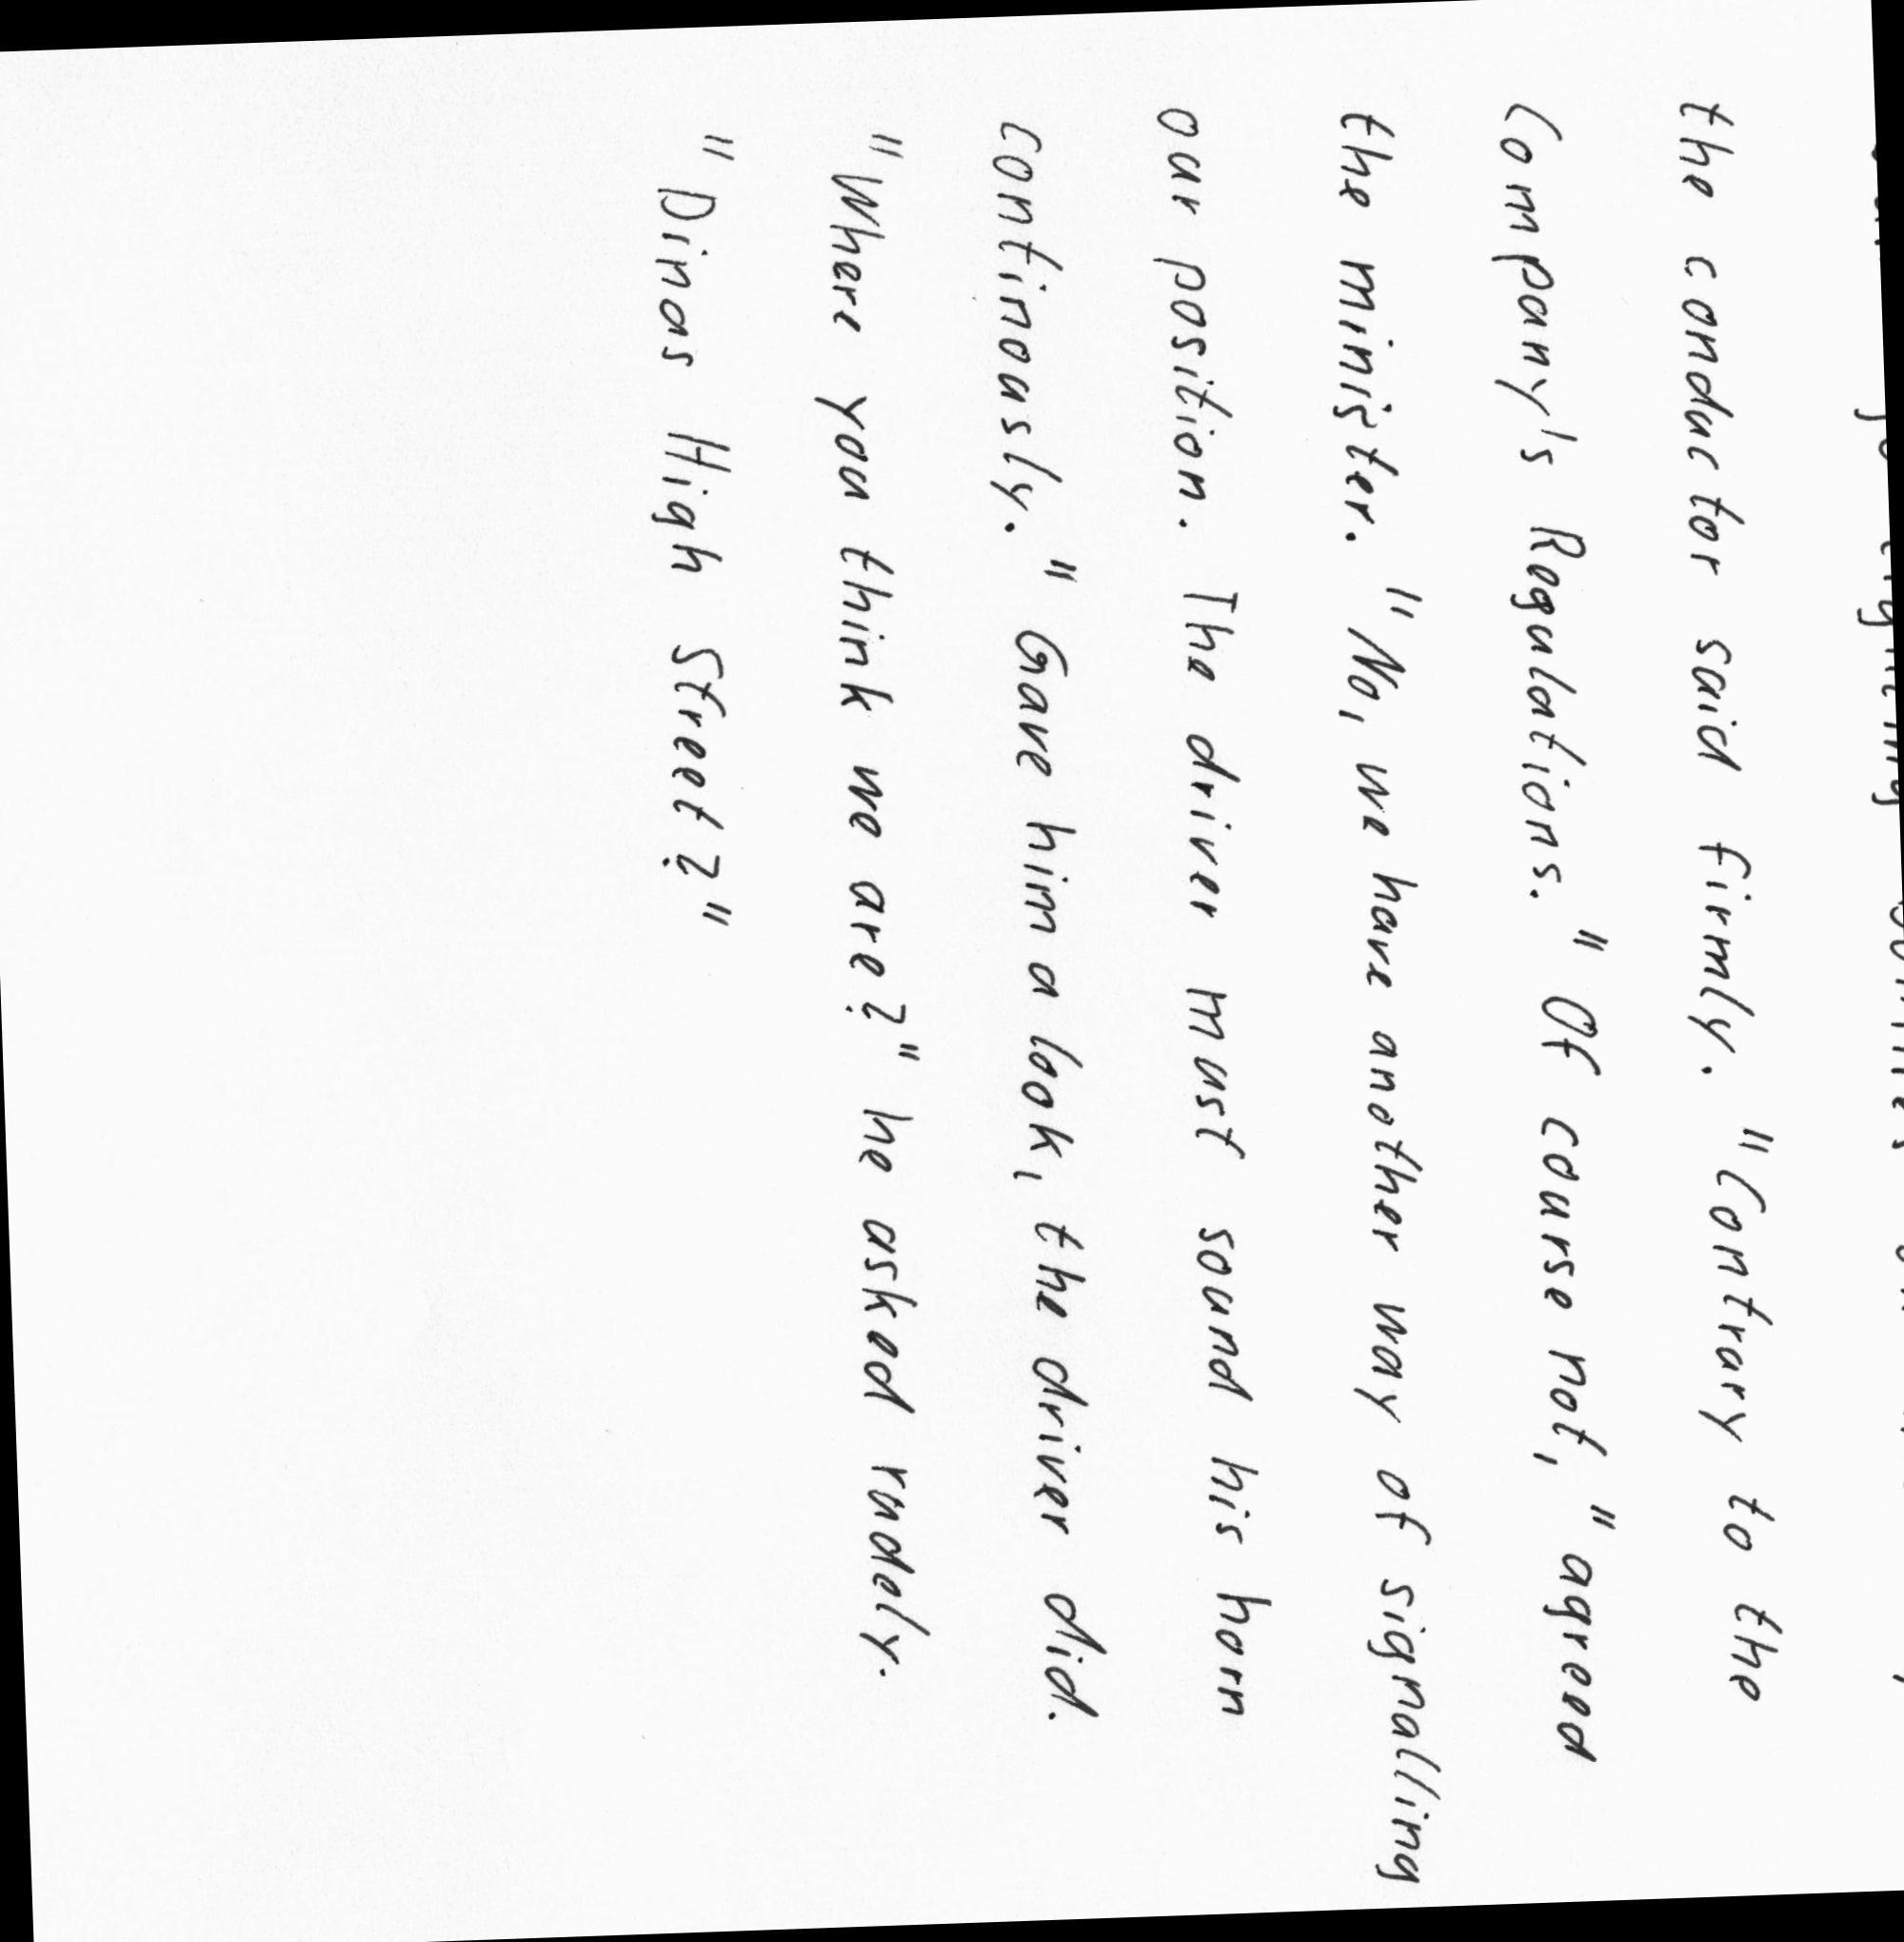 the conductor said firmly. "Contrary to the
Company's Regulations. " Of course not, " agreed
the minister. "No, we have another way of signalling
our position. The driver must sound his horn
continously. " Gave him a look, the driver did.
"Where you think we are?" he asked rudely.
"Dinas High Street?"